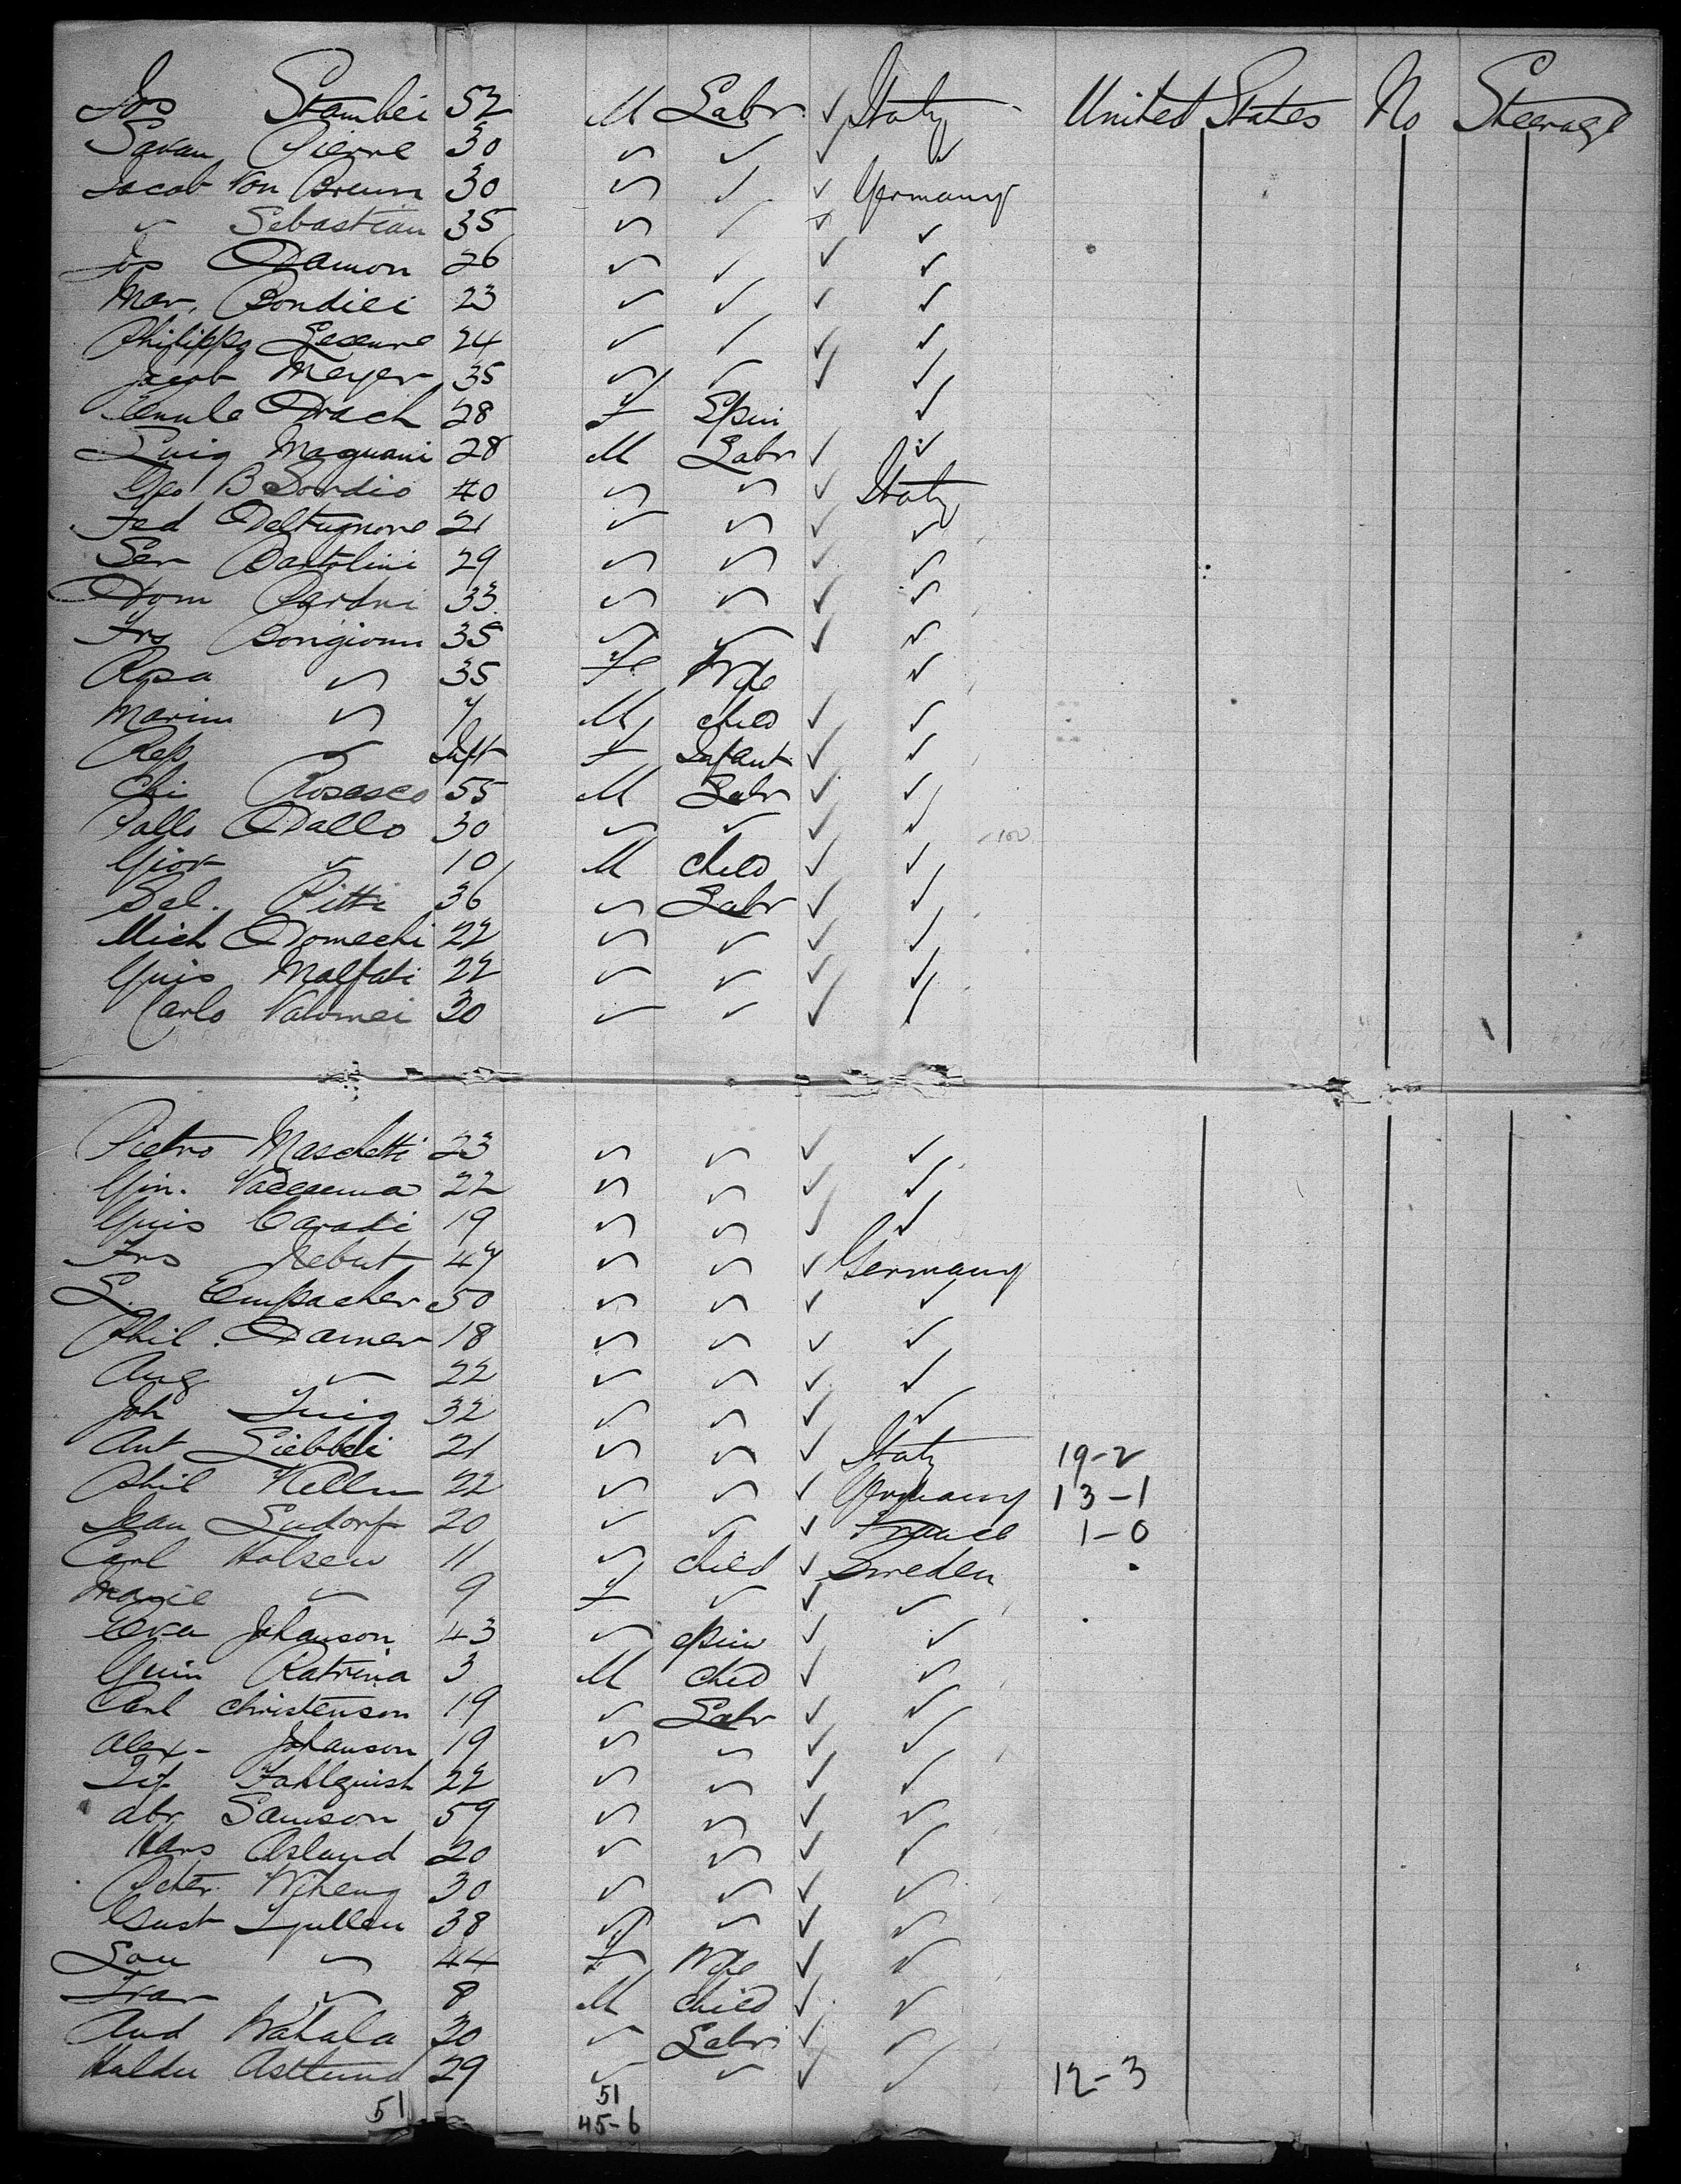 Jos Stambei 52 M Labr ✓ Italy United States No Steerage
Savan Pierre 30 ✓ ✓ ✓ ✓
Jacob Von Breum 30 ✓ ✓ ✓ Germany
✓ Sebastian 35 ✓ ✓ ✓ ✓
Jos Damon 26 ✓ ✓ ✓ ✓
Mar. Bondiei 23 ✓ ✓ ✓ ✓
Philippe 24 ✓ ✓ ✓ ✓
Jacob Meyer 35 ✓ ✓ ✓ ✓
Drach 28 F Spin ✓
Luig Magnani 28 M Labr ✓ ✓
Geo B Sordio 40 ✓ ✓ ✓ Italy
Fed 21 ✓ ✓ ✓ ✓
Ser Bartolini 29 ✓ ✓ ✓ ✓
Dom Pardni 33 ✓ ✓ ✓ ✓
Frs Bongionn 35 ✓ ✓ ✓ ✓
Rosa ✓ 35 Fe Wife ✓
Marim ✓ 7 M child ✓ ✓
Rep ✓ Inft F Infant ✓ ✓
Chi Rosasco 55 M Labr ✓ ✓
Pallo Dallo 30 ✓ ✓ ✓ ✓
Giov ✓ 10 M child ✓ ✓
Sal. Pitti 36 ✓ Labr ✓ ✓
Mich Domechi 22 ✓ ✓ ✓ ✓
Guis Malfati 22 ✓ ✓ ✓ ✓
Carlo Valomei 30 ✓ ✓ ✓ ✓
Pietro Maschetti 23 ✓ ✓ ✓ ✓
Gin. 22 ✓ ✓ ✓ ✓
Guis Caradi 19 ✓ ✓ ✓ ✓
Frs Nebut 47 ✓ ✓ ✓ Germany
L. Empacher 50 ✓ ✓ ✓ ✓
Phil. Damer 18 ✓ ✓ ✓ ✓
Aug ✓ 22 ✓ ✓ ✓ ✓
Joh 32 ✓ ✓ ✓ ✓
Ant 21 ✓ ✓ ✓ Italy 19-2
Phil Kelln 22 ✓ ✓ ✓ Germany 13-1
Jean Ludorf 20 ✓ ✓ ✓ France 1-0
Carl Holsen 11 ✓ child ✓ Sweden
Marie ✓ 9 F ✓ ✓ ✓
Eva Johanson 43 ✓ spin ✓ ✓
Katrina 3 M child ✓ ✓
Carl Christenson 19 ✓ Labr ✓ ✓
Alex- Johanson 19 ✓ ✓ ✓ ✓
Fahlquist 22 ✓ ✓ ✓ ✓
Abr. Samson 59 ✓ ✓ ✓ ✓
Hans Aslund 20 ✓ ✓ ✓ ✓
Peter 30 ✓ ✓ ✓ ✓
Gust 38 ✓ ✓ ✓ ✓
Lou ✓ 44 F Wife ✓ ✓
Ivar ✓ 8 M Child ✓ ✓
And Wahala 30 ✓ Labr ✓ ✓
29 ✓ ✓ ✓ ✓ 12-3
51 51
45-6